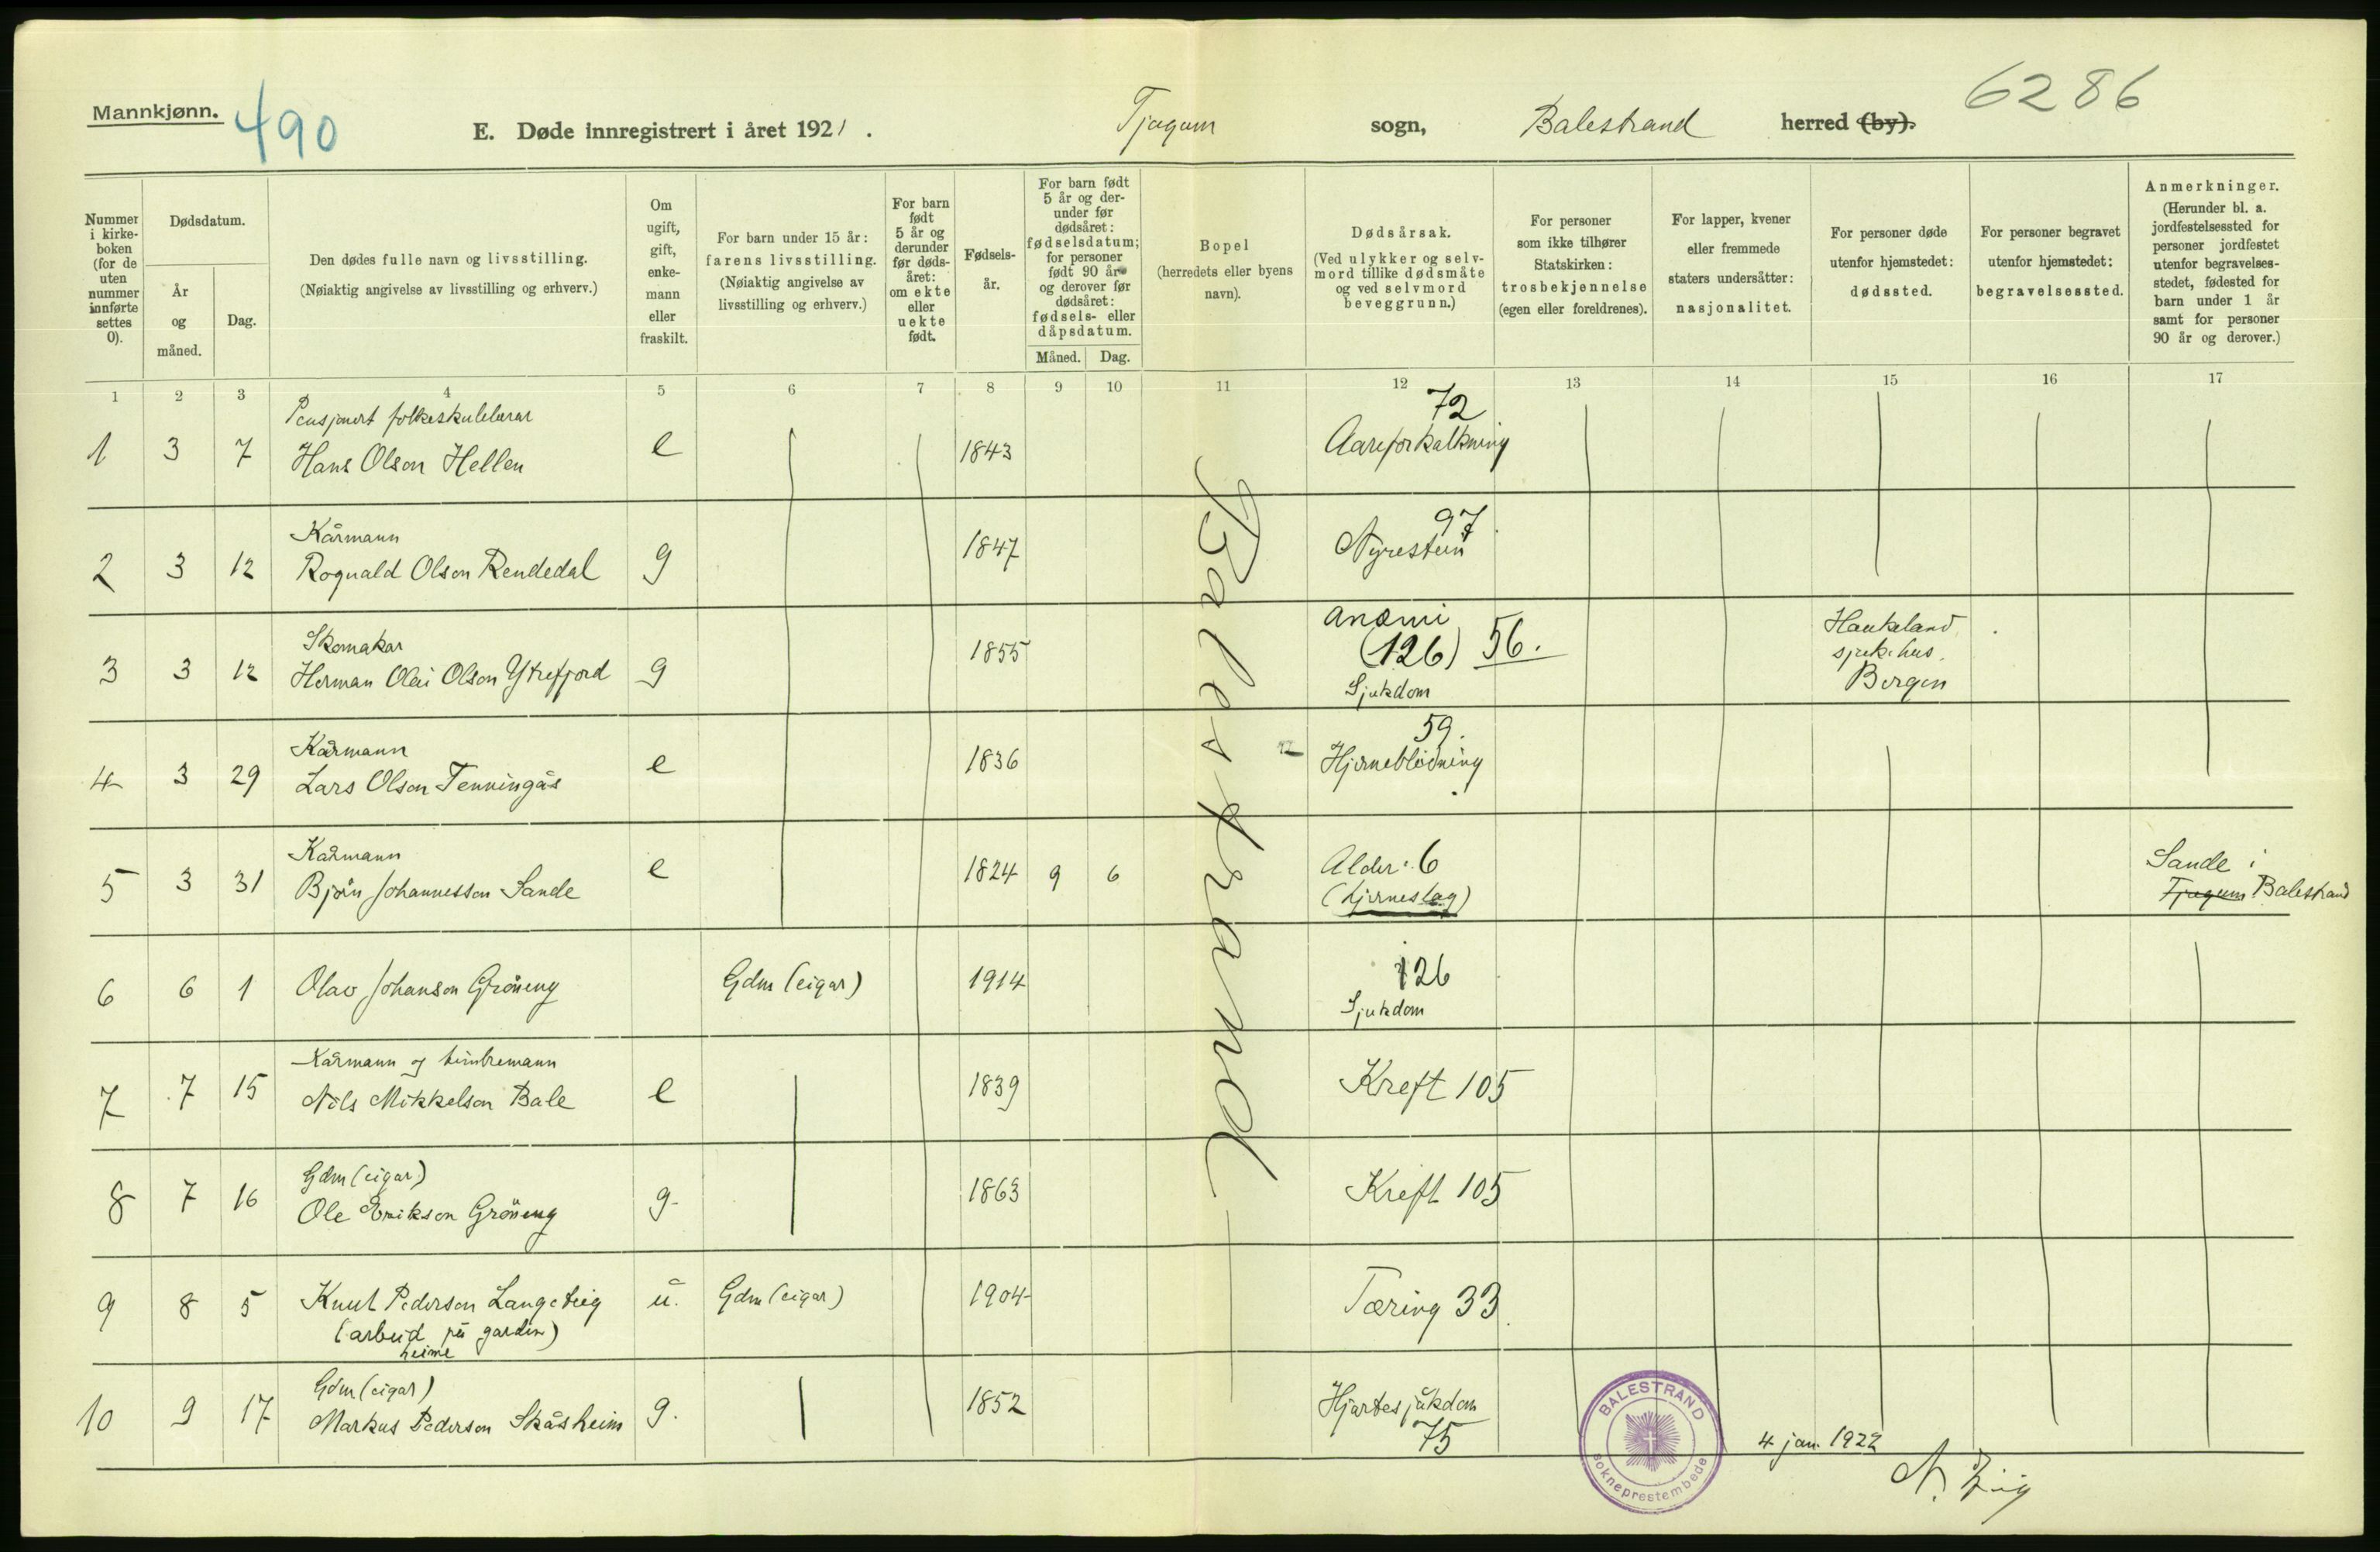 Mannkjønn.
490
E. Døde innregistrert i året 1921.
Tjugum sogn, Balestrand herred (by).
6286
Nummer i kirke-boken (for de uten nummer innførte settes 0).
Dødsdatum.
År og måned.
Dag.
Den dødes fulle navn og livsstilling.
(Nøiaktig angivelse av livsstilling og erhverv.)
Om ugift, gift, enke-mann eller fraskilt.
For barn under 15 år:
farens livsstilling.
(Nøiaktig angivelse av livsstilling og erhverv.)
For barn født 5 år og derunder før døds-året: om ekte eller uekte født.
Fødsels-år.
For barn født 5 år og der-under før dødsåret: fødselsdatum; for personer født 90 år og derover før dødsåret: fødsels- eller dåpsdatum.
Måned. Dag.
Bopel
(herredets eller byens navn).
Dødsårsak.
(Ved ulykker og selv-mord tillike dødsmåte og ved selvmord beveggrunn.)
For personer som ikke tilhører Statskirken: trosbekjennelse (egen eller foreldrenes).
For lapper, kvener eller fremmede staters undersåtter: nasjonalitet.
For personer døde utenfor hjemstedet: dødssted.
For personer begravet utenfor hjemstedet: begravelsessted.
Anmerkninger.
(Herunder bl. a. jordfestelsessted for personer jordfestet utenfor begravelses-stedet, fødested for barn under 1 år samt for personer 90 år og derover.)
1 2 3 4 5 6 7 8 9 10 11 12 13 14 15 16 17
Pensjonert folkeskulelærar 72
1 3 7 Hans Olson Hellen e 1843 Aareforkalkning
Kårmann 97
2 3 12 Rognald Olson Rendedal g 1847 Nyrestein
Skomakar anæmi Haukeland
3 3 12 Herman Olai Olson Ytrefjord g 1855 (126) 56. sjukehus,
Sjukdom Bergen
Kårmann 59.
4 3 29 Lars Olson Tenningås e 1836 Hjerneblödning
Kårmann Alder: 6 Sande i
5 3 31 Björn Johannesson Sande e 1824 9 6 (hjerneslag) Tjugum Balestrand
6 6 1 Olav Johanson Gröneng Gdm (eigar) 1914 126
Sjukdom
Kårmann og timbremann
7 7 15 Nils Mikkelson Bale e 1839 Kreft 105
Gdm (eigar)
8 7 16 Ole Erikson Gröneng g. 1863 Kreft 105
9 8 5 Knut Pederson Langeteig u. Gdm (eigar) 1904 Tæring 33
(arbeid på garden)
heime
Gdm (eigar)
10 9 17 Markus Pederson Skåsheim g. 1852 Hjartesjukdom
75
Balestrand
BALESTRAND
sokneprestembede
4 jan. 1922